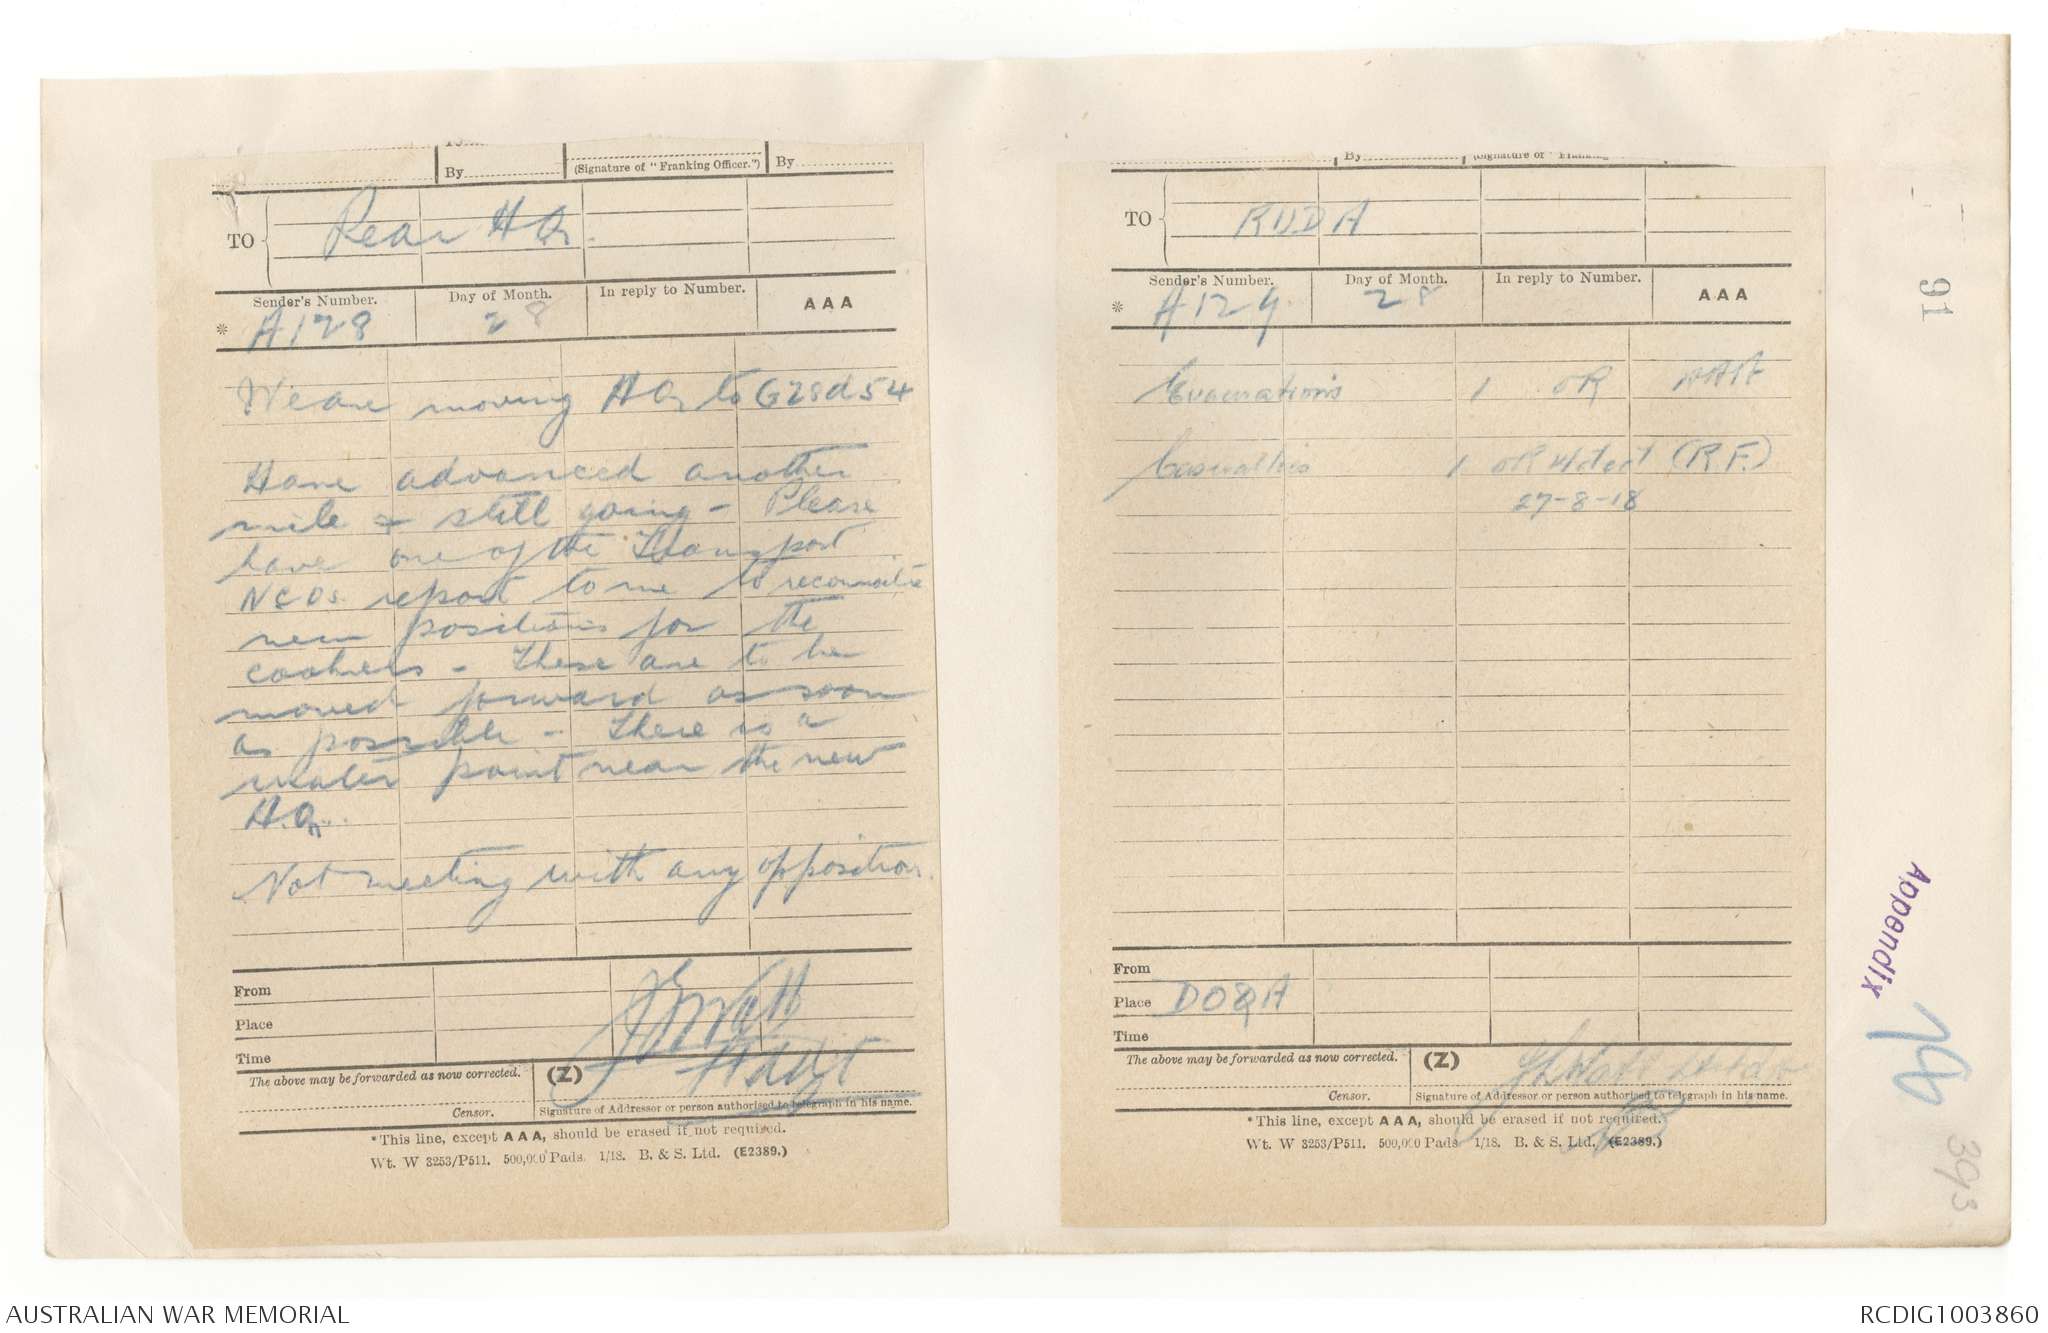 By
(Signature of "Franking Officer.")
By
TO
Rear HQ.
Sender's Number.
Day of Month.
In reply to Number.
AAA
*
A128
28
We are moving HQ to G28d54
Have advanced another
mile & still going - Please
have one of the Transport
NCOs. report to me to reconnoitre
new positions for the
cookers - These are to be
moved forward as soon
as possible - There is a
water point near the new
H.Q.
Not meeting with any opposition.
From
Place
Time
The above may be forwarded as now corrected.
(Z)
Censor.
Signature of Addressor or person authorised to telegraph in his name.
*This line, except AAA, should be erased if not required.
Wt. W 3253/P511. 500,000 Pads. 1/18. B. & S. Ltd. (E2389.)
By
(Signature of "Franking
TO
RUDA
Sender's Number.
Day of Month.
In reply to Number.
AAA
*
A129
28
Evacuations 1 OR AAA
Casualties 1 OR (R.F.)
27-8-18
From
Place
DOQA
Time
The above may be forwarded as now corrected.
(Z)
Censor.
Signature of Addressor or person authorised to telegraph in his name.
*This line, except AAA, should be erased if not required.
Wt. W 3253/P511. 500,000 Pads. 1/18. B. & S. Ltd. (E2389.)
91
Appendix
393
AUSTRALIAN WAR MEMORIAL
RCDIG1003860